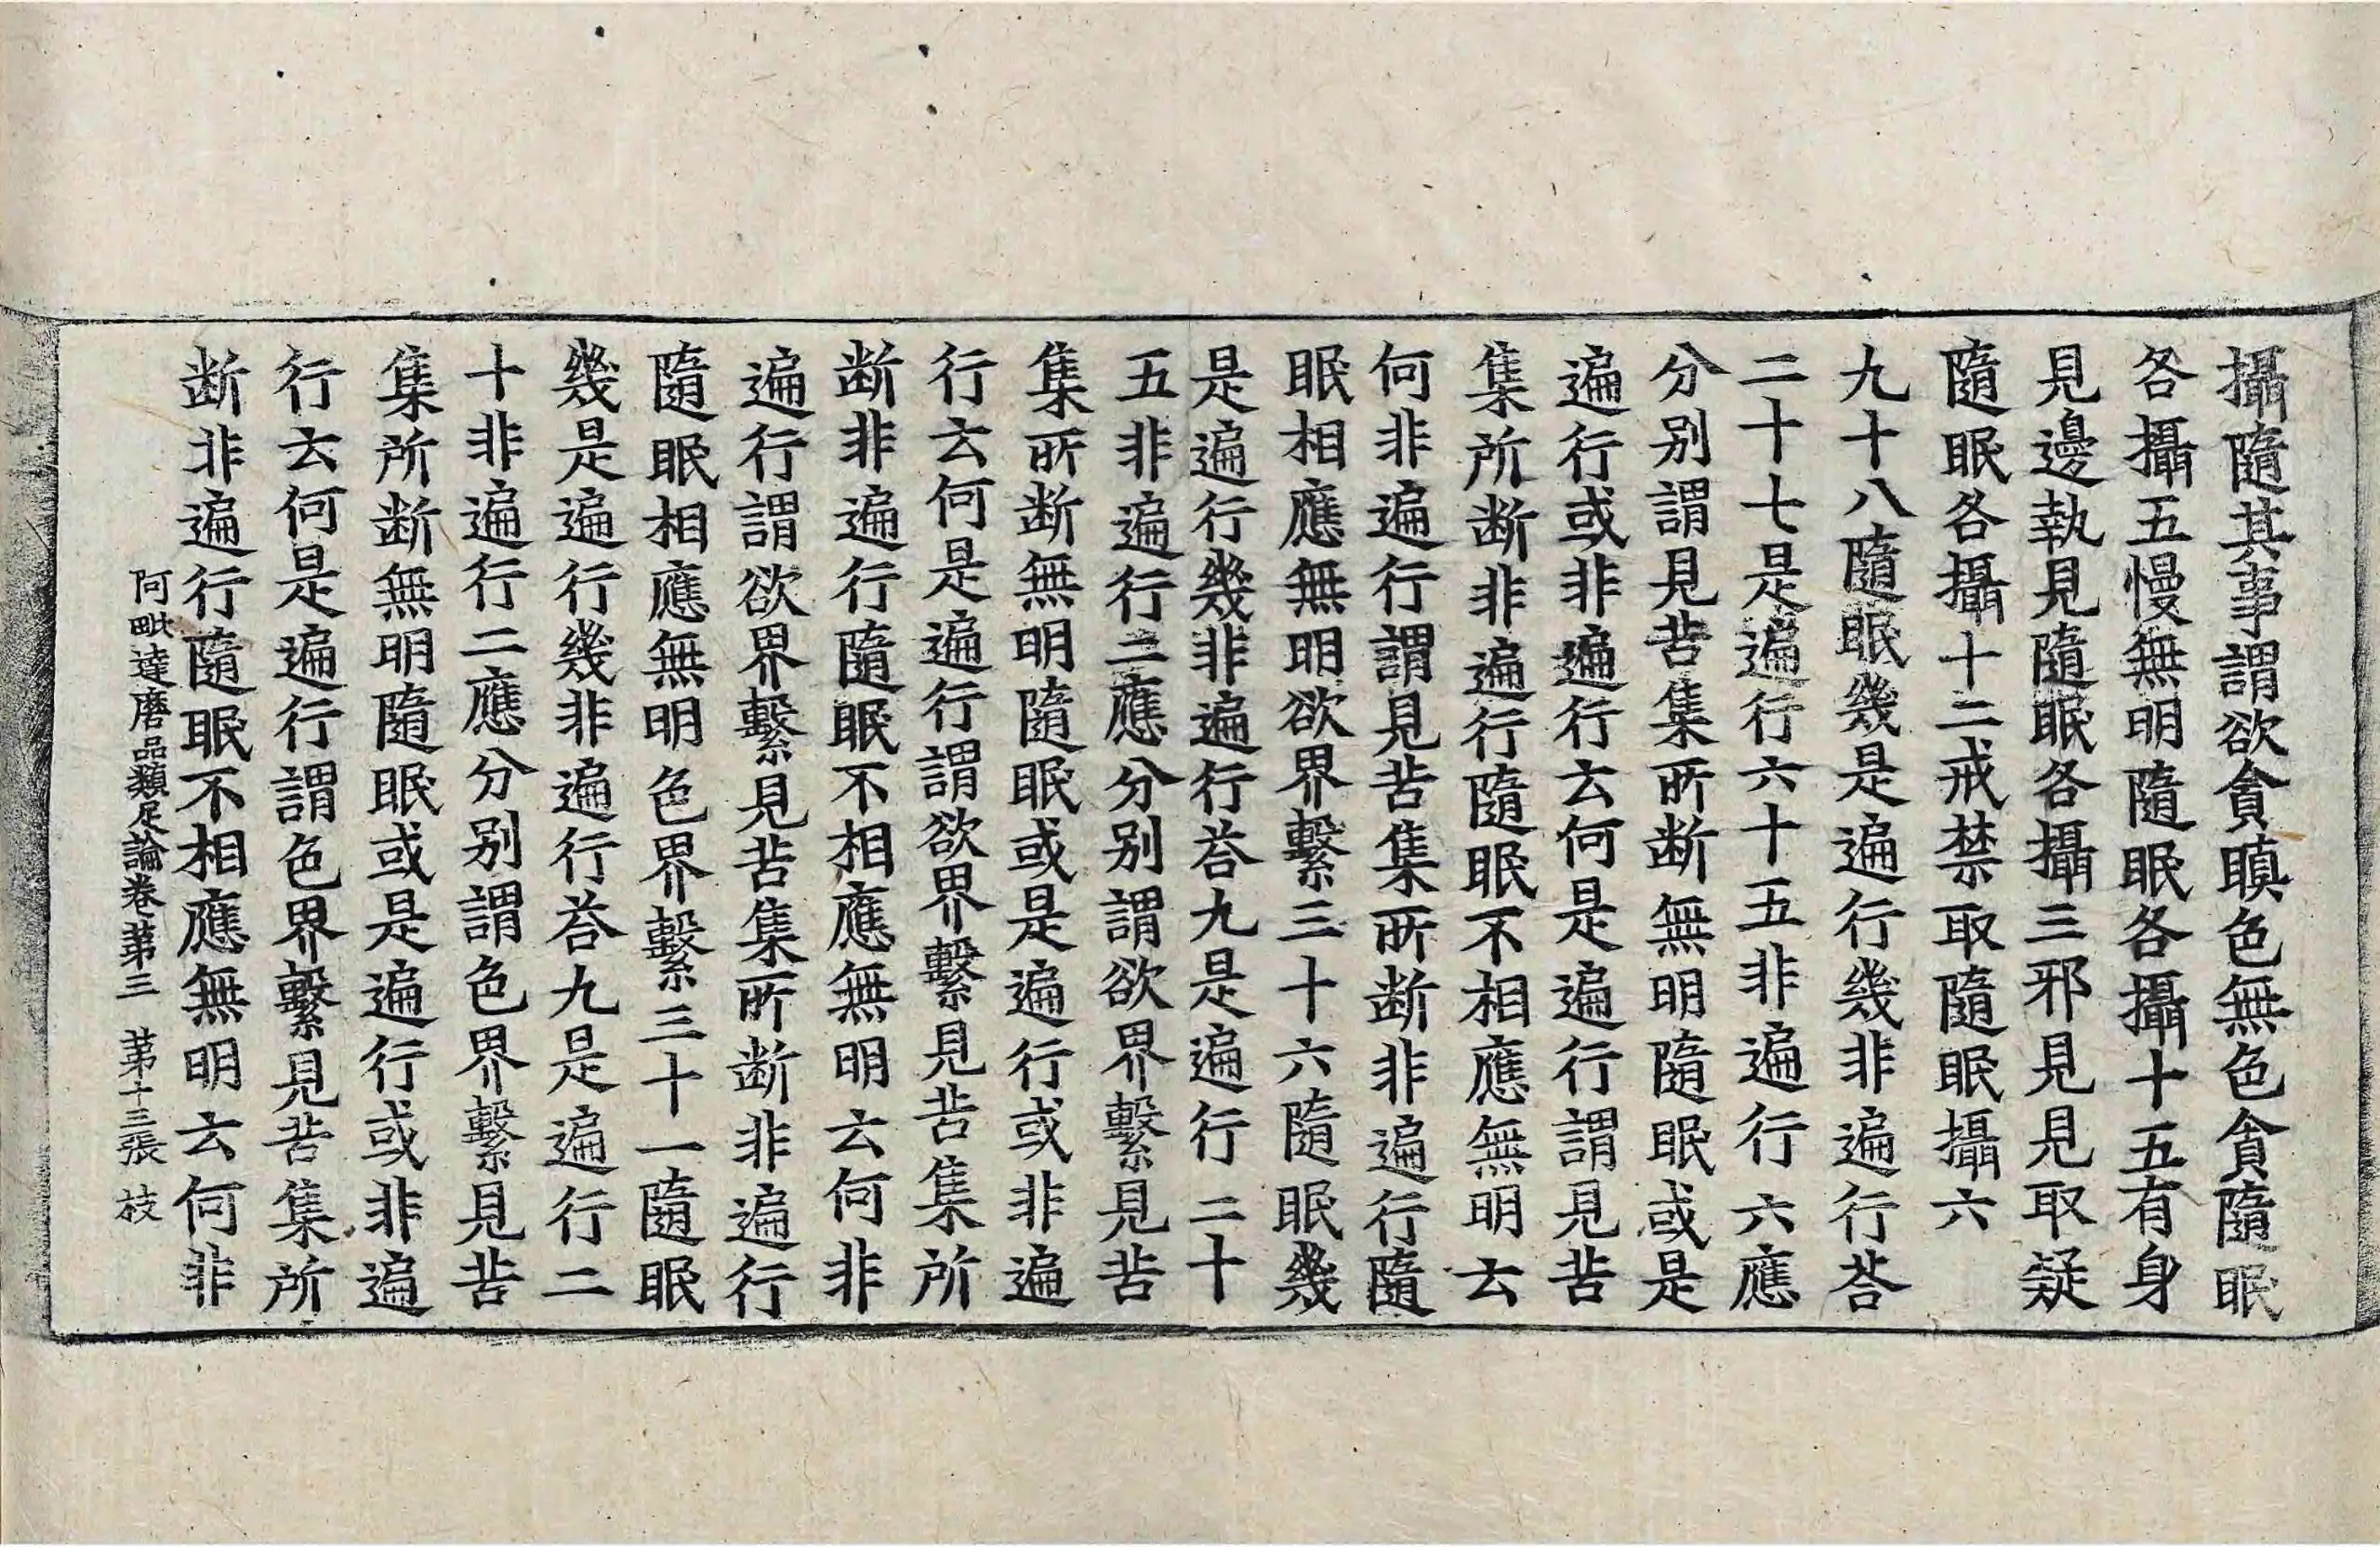 攝隨其事謂欲貪瞋色無色貪隨眠
各攝五慢無明隨眠各攝十五有身
見邊執見隨眠各攝三邪見見取疑
隨眠各攝十二戒禁取隨眠攝六
九十八隨眠幾是遍行幾非遍行荅
二十七是遍行六十五非遍行六應
分别謂見苦集所断無明隨眠或是
遍行或非遍行云何是遍行謂見苦
集所断非遍行隨眠不相應無明云
何非遍行謂見苦集所断非遍行隨
眠相應無明欲界繫三十六隨眠幾
是遍行幾非遍行荅九是遍行二十
五非遍行二應分别謂欲界繫見苦
集所断無明隨眠或是遍行或非遍
行云何是遍行謂欲界繫見苦集所
断非遍行隨眠不相應無明云何非
遍行謂欲界繫見苦集所断非遍行
隨眠相應無明色界繫三十一隨眠
幾是遍行幾非遍行荅九是遍行二
十非遍行二應分别謂色界繫見苦
集所断無明隨眠或是遍行或非遍
行云何是遍行謂色界繫見苦集所
断非遍行隨眠不相應無明云何非
阿毗達磨品類足論卷第三 第十三張 枝